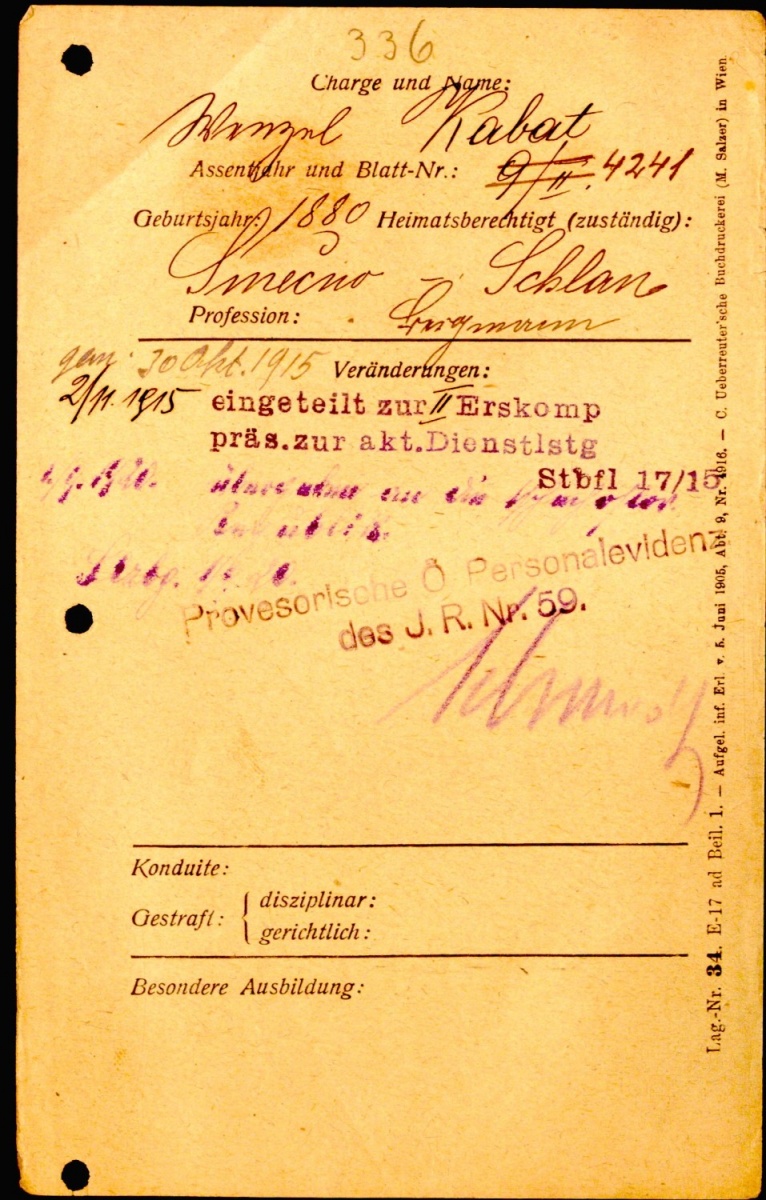 336
Charge und Name:
Wenzel Kabat
Assentjahr und Blatt-Nr.: 9/II. 4241
Geburtsjahr: 1880 Heimatsberechtigt (zuständig):
Smečno - Schlan
Profession: Bergmann
30 Okt. 1915 Veränderungen:
2/11. 1915 eingeteilt zur II Erskomp
präs.zur akt.Dienstlstg
Stbfl 17/15
an die
Provesorische Ö Personalevidenz
des J. R. Nr. 59.
Konduite:
Gestraft: { disziplinar:
gerichtlich:
Besondere Ausbildung:
Lag.-Nr. 34. E-17 ad Beil. 1. — Aufgel. inf. Erl. v. 5. Juni 1905, Abt. 9, Nr. 4916. — C. Ueberreuter'sche Buchdruckerei (M. Salzer) in Wien.